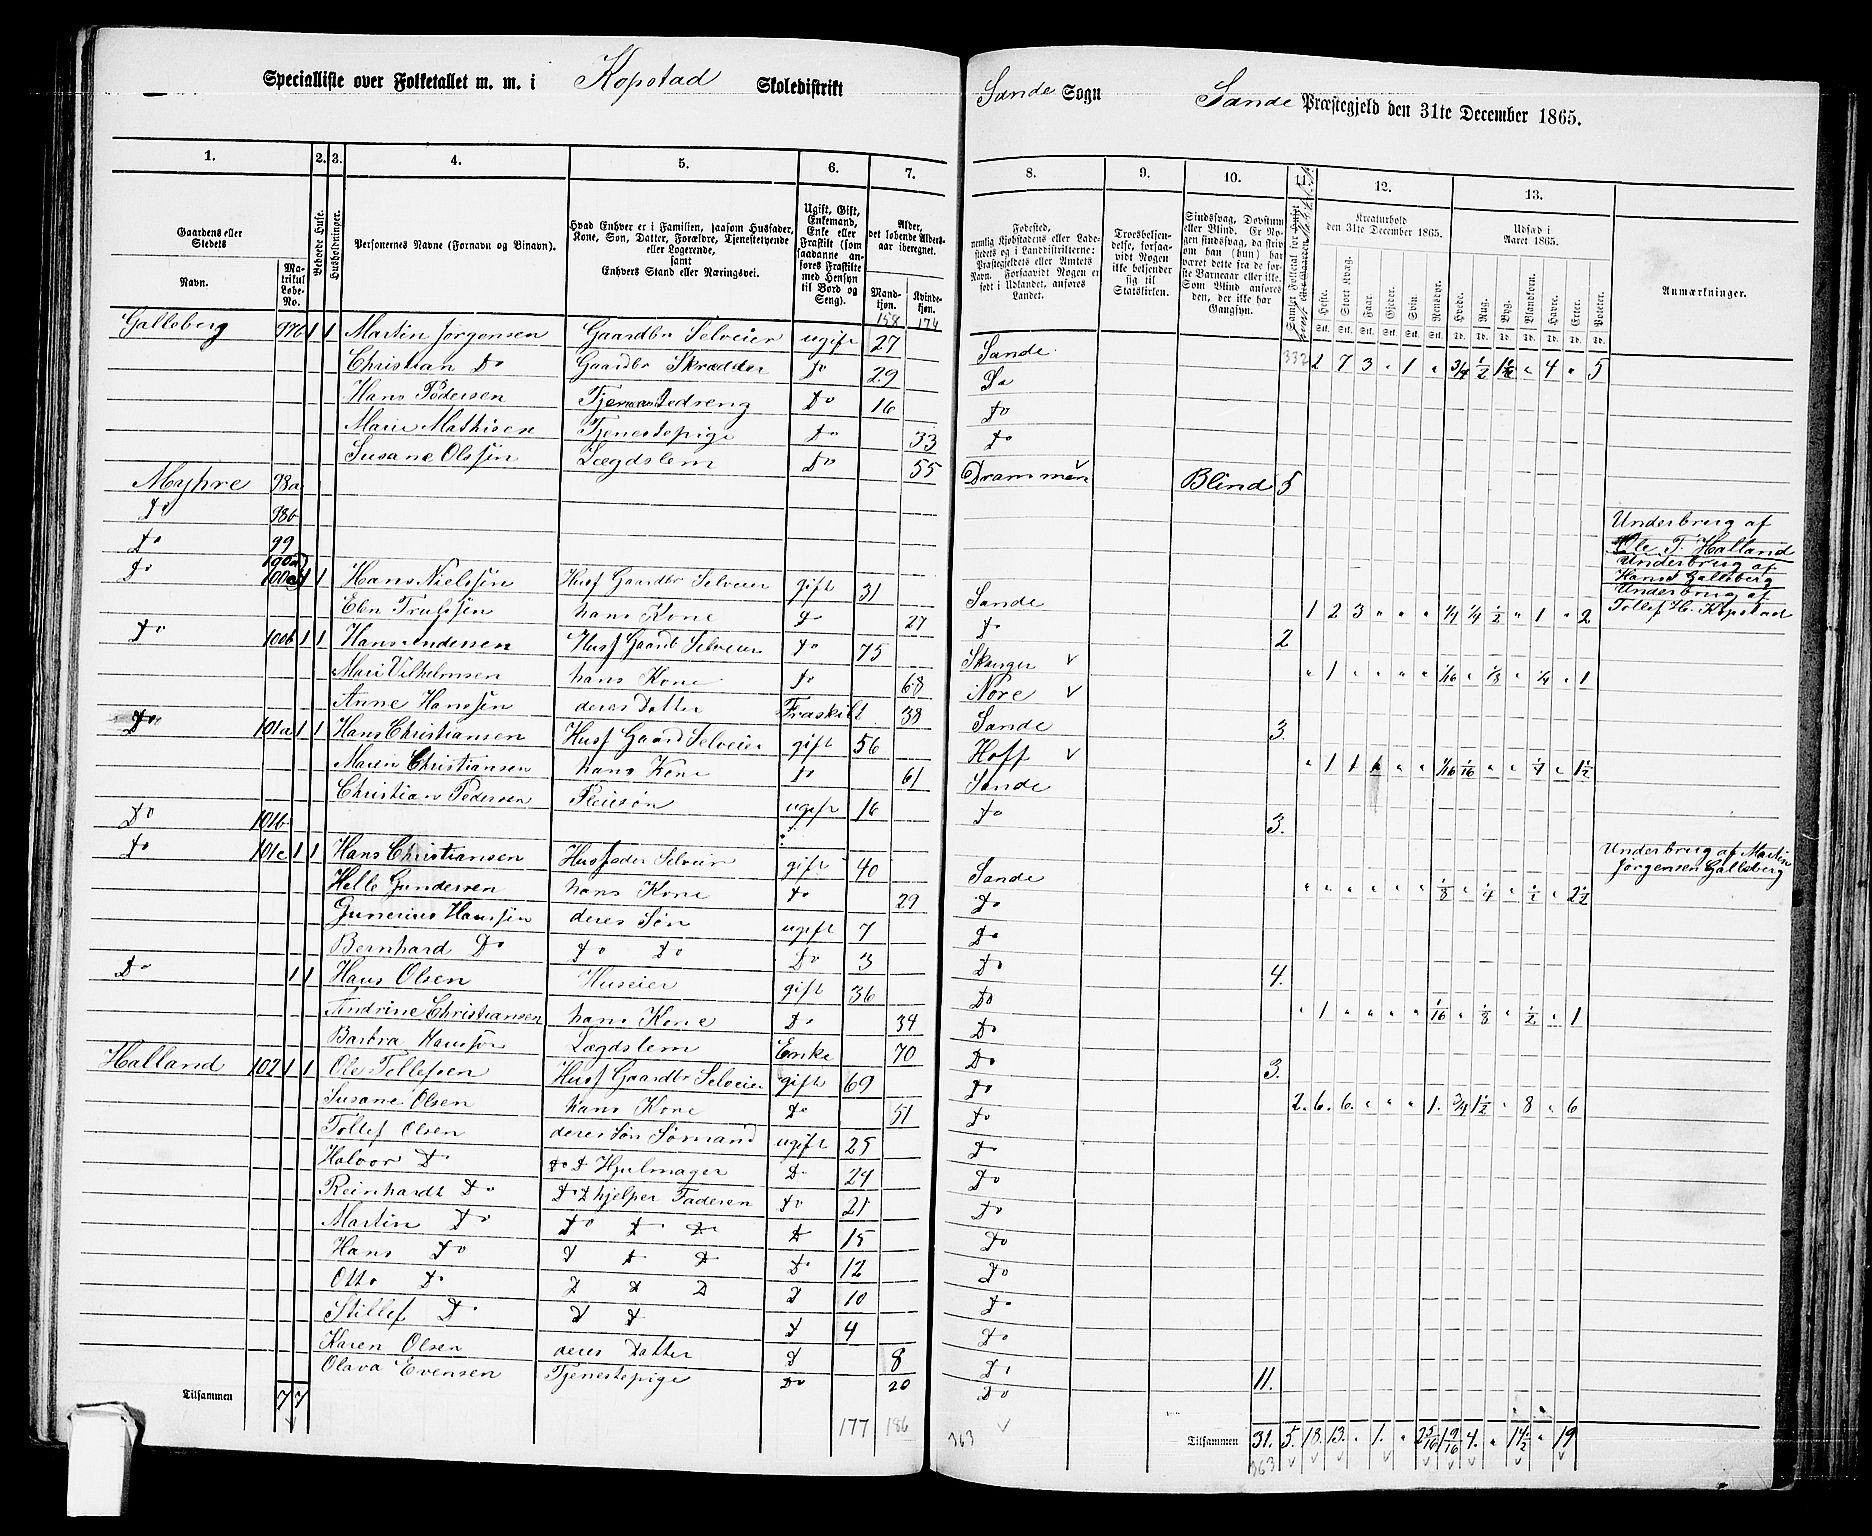 Specialliste over Folketallet m. m. i Kopstad Skoledistrikt Sande Sogn Sande Præstegjeld den 31te December 1865.
1. 2. 3. 4. 5. 6. 7. 8. 9. 10. 11. 12. 13.
Gaardens eller Stedets
Navn.
Matrikul Løbe-No.
Beboede Huse.
Husholdninger.
Personernes Navne (Fornavn og Binavn).
Hvad Enhver er i Familien, saasom Husfader, Kone, Søn, Datter, Forældre, Tjenestetyende eller Logerende, samt Enhvers Stand eller Næringsvei.
Ugift, Gift, Enkemand, Enke eller Fraskilt (som saadanne anføres Fraskilte med Hensyn til Bord og Seng).
Alder, det løbende Alders-aar iberegnet.
Mand-kjøn.
Kvinde-kjøn.
158 174
Fødested, nemlig Kjøbstadens eller Ladestedets og i Landdistrikterne: Præstegjeldets eller Amtets Navn. Forsaavidt Nogen er født i Udlandet, anføres Landet.
Troesbekjendelse, forsaavidt Nogen ikke bekjender sig til Statskirken.
Sindssvag, Døvstum eller Blind. Er Nogen sindssvag, da skriv om han (hun) har været dette fra de første Barneaar eller ikke. Som Blind anføres den, der ikke har Gangsyn.
Kreaturhold den 31te December 1865.
Heste. Stort Kvæg. Faar. Gjeder. Sviin. Rensdyr.
Udsæd i Aaret 1865.
Hvede. Rug. Byg. Blandkorn. Havre. Erter. Poteter.
Anmærkninger.
Galleberg 97b 1 1 Martin Jørgensen Gaardbr Selveier ugift 27 Sande 332 2 7 3 " 1 " 3/4 1/2 " 4 " 5
Christian Do Gaardbr Skrædder Do 29 Do
Hans Pedersen Tjenestedreng Do 16 Do
Marie Mathisen Tjenestepige Do 33 Do
Susane Olssen Lægdslem Do 55 Drammen Blind 5
Myhre 98a
Do 98b Underbrug af
Do 99 Ole T. Halland
Do 100a Underbrug af Hans Galleberg
1 1 Hans Nielssen Husf Gaardbr Selveier gift 31 Sande 1 2 3 " " " 1/4 1/4 1/2 " 1 " 2 Underbrug af Tollef H. Kopstad
Truls̈sen hans Kone Do 27 Do 2
Do 100b 1 1 Hans Andersen Husf Gaardb Selveier Do 75 Skauger " 1 " " " " 1/16 " 1/8 " 1/4 " 1
Mari Vilhelmsen hans Kone Do 68 Nore
Anne Hanssen deres Datter Fraskilt 38 Sande 3.
Do 101a 1 1 Hans Christiansen Husf Gaard Selveier gift 56 Hoff " 1 1 " " 1/16 1/16 " " " 1 1/2
Maren Christiansen hans Kone Do 61 Sande
Christian Pedersen Pleiesøn ugift 16 Do 3.
Do 101b Underbrug af Martin Jørgensen Galleberg
Do 101c 1 1 Hans Christiansen Husfader Selveier gift 40 Sande " " " " " " 1/8 " 1/4 " 1/2 " 2 1/2
Helle Gundersen hans Kone Do 29 Do
Gunerius Hanssen deres Søn ugift 7 Do
Bernhard Do Do Do Do 3 Do 4.
Do 1 1 Hans Olsen Huseier gift 36 Do " 1 " " " " 1/16 " 1/8 " 1/2 " 1
Andrine Christiansen hans Kone Do 34 Do
Barbra Hanssen Lægdslem Enke 70 Do 3.
Halland 102 1 1 Ole Tollefsen Husf Gaardbr Selveier gift 69 Do 2. 6. 6. " " " 1. 3/4 1 1/2 " 8 " 6
Susane Olsen hans Kone Do 51 Do
Tollef Olsen deres Søn Sømand ugift 25 Do
Halvor Do Do D Hjulmager D 24 Do
Reinhardt Do D D hjelper Faderen Do 21 Do
Martin Do Do D Do D 15 Do
Hans Do D D D Do 12 Do
Otto Do D D D D 10 Do
Stillef Do D D D 4 Do
Karen Olsen deres Datter D 8 Do
Olava Evensen Tjenestepige Do 20 Do 11.
Tilsammen 7 7 177 186 363 Tilsammen 31. 5. 18. 13. " 1. " 2 5/16 1 9/16 4. " 14 1/2 " 19
363